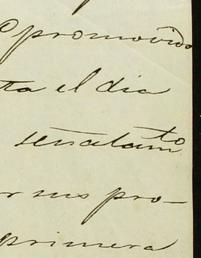 promovido
ta el dia
señalamto
r sus pro-
primera